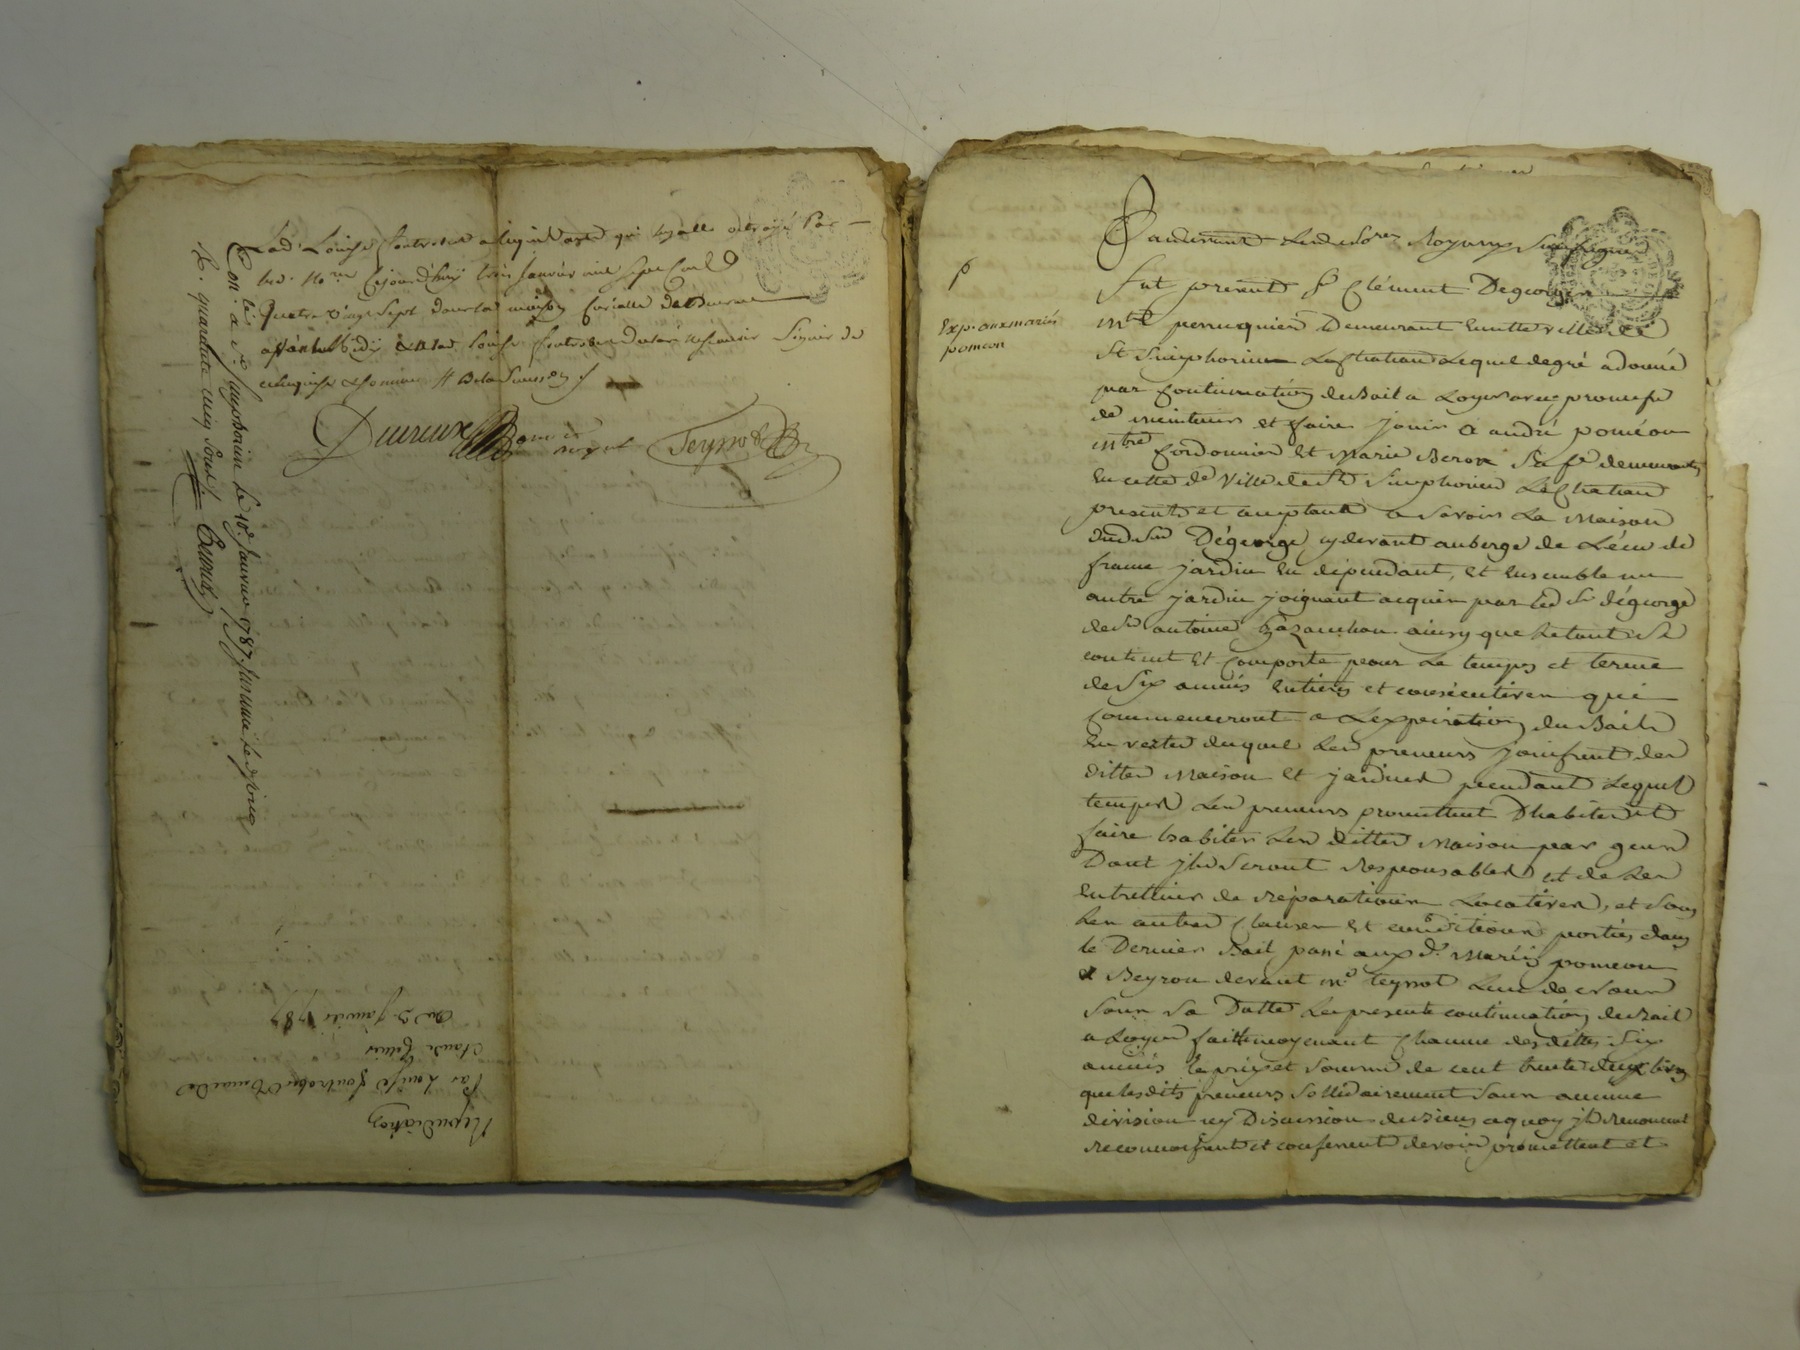 Lad. Louise a requis acte qui luy a été octroyé par
led. no.re cejourd'huy trois janvier mil sept cent
quatre vingt sept dans la maison curialle de
avant midy & lad. Louise de ce enquise & sommée
Dureux Teyssot
Con.lé a St. Simphorien le 10. janvier 1787.
R. quarante cinq sous
Repudiation
par Louise
Claude
du 3. janvier 1787
Pardevant les No.res Royaux soussignés
Fut present Sr Clément Degeorge
m.tre perruquier demeurant en cette ville de
St Simphorien Le Chatau lequel de gré a donné
par continuation de Bail a Loyer avec promesse
de maintenir et faire jouir a andré poméon
m.tre Cordonnier et Marie Beron sa fe demeurants
en cette de ville de St Simphorien Le Chatau
presents et acceptants a savoir La Maison
dud. Sr Dégeorge cy devant auberge de L'écu de
france jardin en dépendant, et ensemble un
autre jardin joignant acquis par led Sr dégeorge
de Sr antoine ainsy que le tout se
contient et Comporte pour Le temps et terme
de Six années entieres et consécutives qui
Commenceront a L'expiration du Bail
en vertu duquel Les preneurs jouissent des
dittes Maison et jardins pendant Lequel
temps les preneurs promettent D'habiter et
faire habiter les dittes Maison par gens
Dont jls seront responsables et de les
entrettenir de réparations Locatives, et sous
les autres Clauses et conditions portées dans
le Dernier Bail passé aux d. Mariés pomeon
& Beyron devant Me Teyssot L'un de nous
sous sa Datte La presente continuation de Bail
a Loyer faitte moyenant Chacune des dittes Six
années le prix et somme de cent trente deux livres
que lesdits preneurs Sollidairement sans aucune
division ny Discussion de biens a quoy jls renoncent
reconnoissent et confessent devoir promettent et
Exp. aux mariés
pomeon